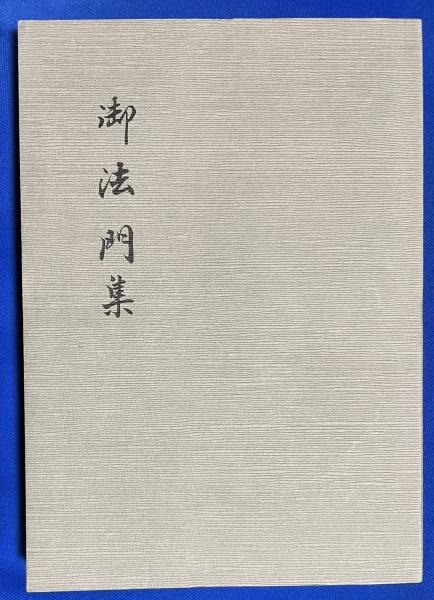 御法門集